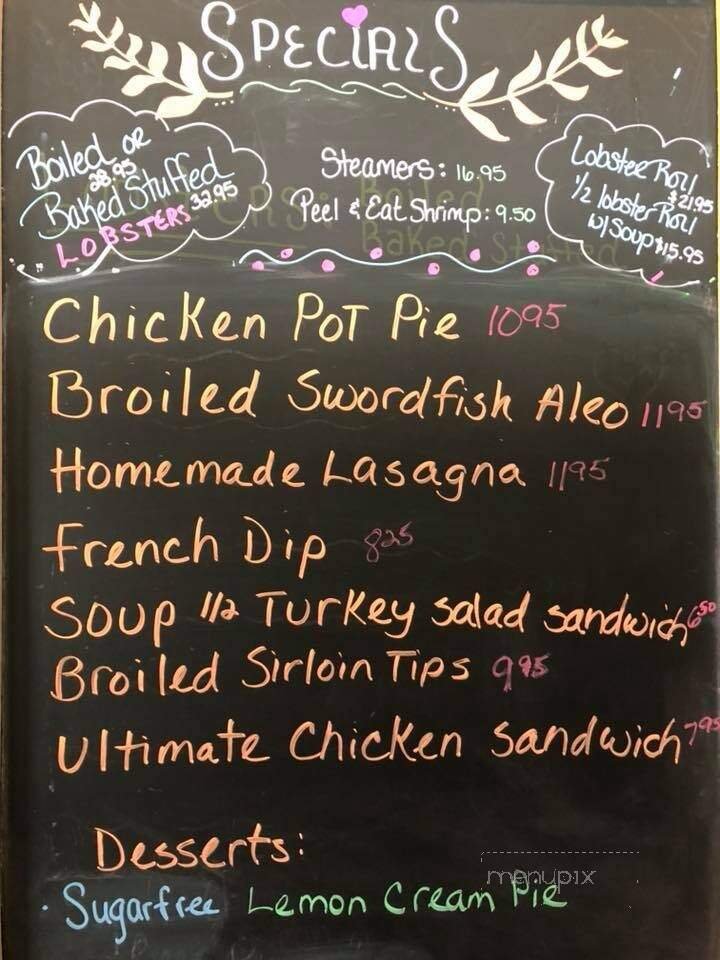 SPECIALS
Boiled or
28.95
Baked Stuffed
32.95
LOBSTERS
Steamers: 16.95
Peel & Eat Shrimp: 9.50
Lobster Roll
$21.95
1/2 lobster Roll
w/ Soup $15.95
Chicken Pot Pie 1095
Broiled Swordfish Aleo 1195
Homemade Lasagna 1195
French Dip 825
Soup 1/2 Turkey salad sandwich 6.50
Broiled Sirloin Tips 995
Ultimate Chicken Sandwich 795
Desserts:
· Sugarfree Lemon Cream Pie
menupix